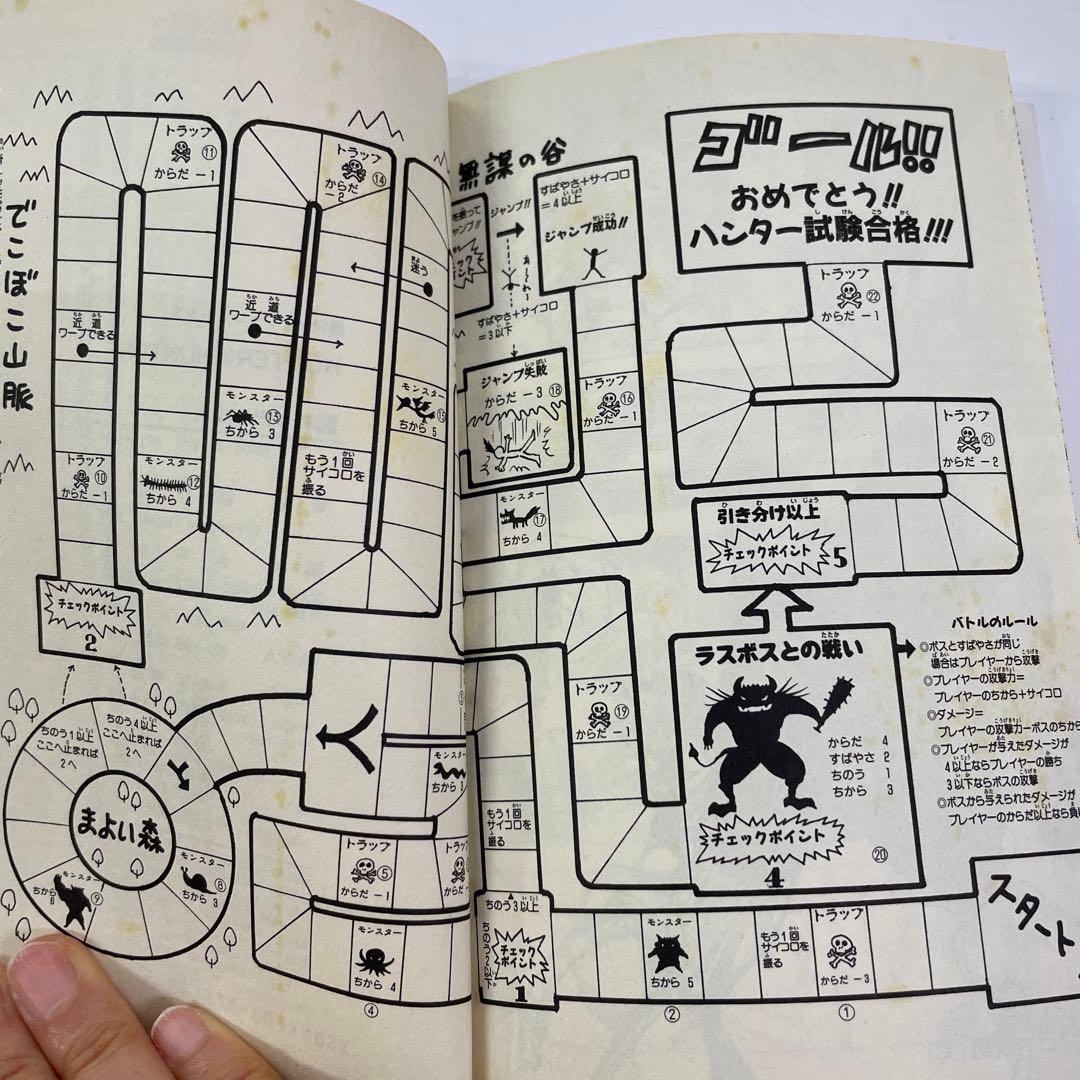 でこぼこ山脈
トラップ
⑪
からだ－1
トラップ
⑭
からだ
－2
近道
ちかみち
ワープできる
近道
ちかみち
ワープできる
迷う
まよ
モンスター
⑬
ちから 3
モンスター
⑮
ちから 5
トラップ
⑩
からだ－1
モンスター
⑫
ちから 4
もう1回
かい
サイコロを
振る
ふ
チェックポイント
2
無謀の谷
ジャンプ!!
すばやさ＋サイコロ
＝4以上
いじょう
せいこう
ジャンプ成功!!
あ～れ～
すばやさ＋サイコロ
＝3以下
いか
しっぱい
ジャンプ失敗
からだ－3
⑱
トラップ
⑯
からだ－1
モンスター
⑰
ちから 4
ゴール!!
おめでとう!!
しけんごうかく
ハンター試験合格!!!
トラップ
㉒
からだ－1
トラップ
㉑
からだ－2
ひ わ いじょう
引き分け以上
チェックポイント
5
たたか
ラスボスとの戦い
からだ 4
すばやさ 2
ちのう 1
ちから 3
チェックポイント
4
⑳
バトルのルール
◎ボスとすばやさが同じ
場合はプレイヤーから攻撃
◎プレイヤーの攻撃力＝
プレイヤーのちから＋サイコロ
◎ダメージ＝
プレイヤーの攻撃力－ボスのちから
◎プレイヤーが与えたダメージが
4以上ならプレイヤーの勝ち
3以下ならボスの攻撃
◎ボスから与えられたダメージが
プレイヤーのからだ以上なら負け
トラップ
⑲
からだ－1
ちのう1以上
ここへ止まれば
2へ
ちのう4以上
ここへ止まれば
2へ
まよい森
モンスター
⑧
ちから 3
モンスター
⑨
ちから
6
もう1回
サイコロを
振る
トラップ
⑤
からだ－1
モンスター
ちから 4
④
ちのう3以上
ちのう2以下
チェック
ポイント
1
モンスター
ちから 5
②
もう1回
サイコロを
振る
トラップ
からだ－3
①
スタート